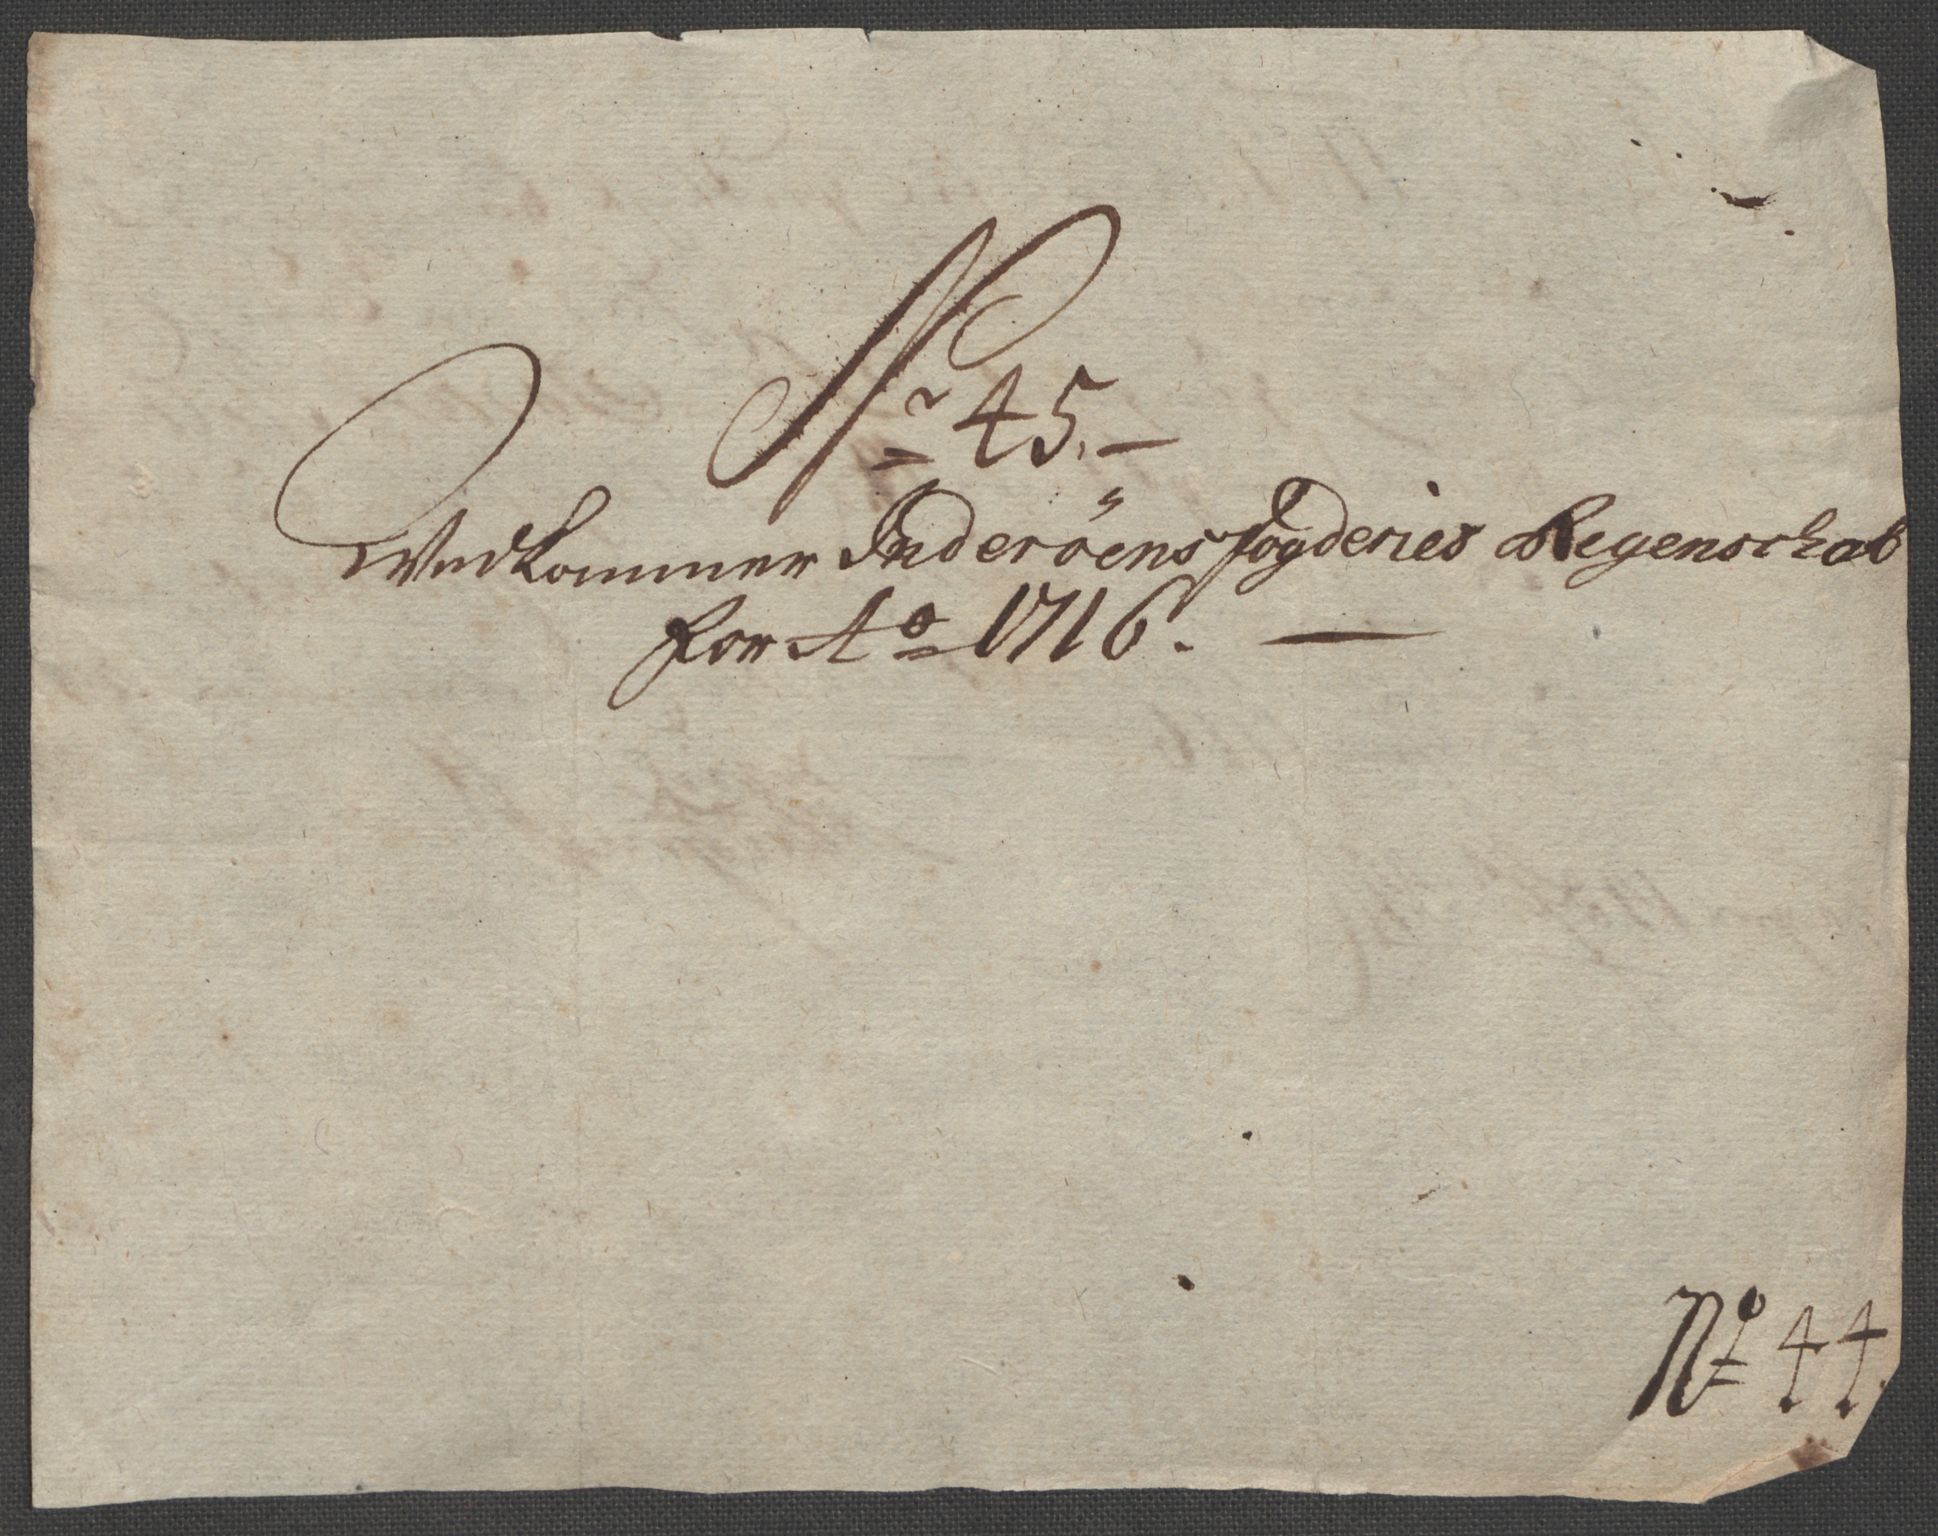 Nr 45. —
Vedkommer Inderöens fogderies Regenschab
for Ao 1716. —
No 44.